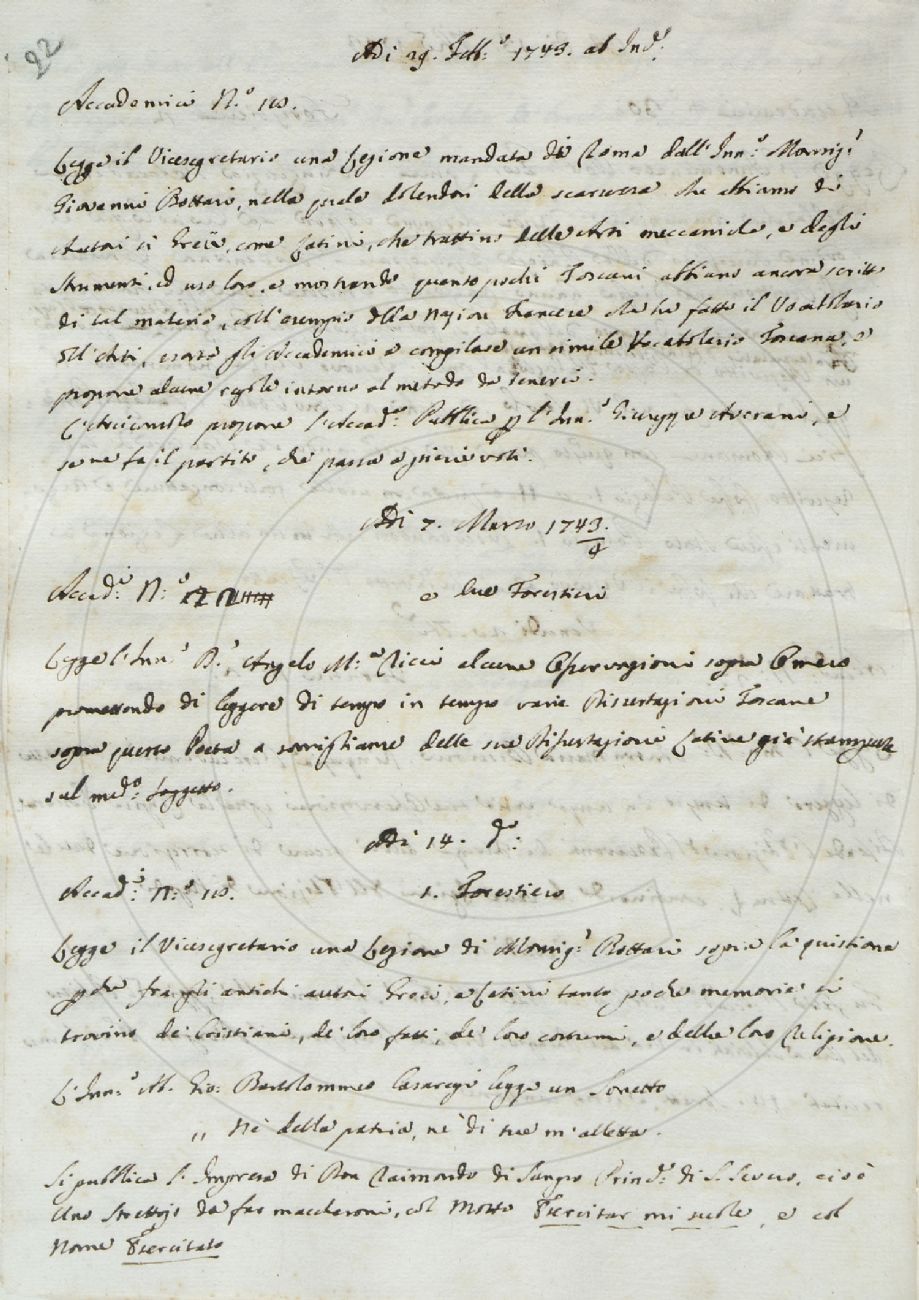 22
Adì 29. Febb.º 1743. ab Ind.e
Accademici N.º 10.
Legge il Vicesegretario una Lezione mandata di Roma dall'Inn.º Monsig.r
Giovanni Bottari, nella quale dolendosi della scarsezza che abbiamo di
Autori sì Greci, come Latini, che trattino delle Arti meccaniche, e degli
strumenti, ed uso loro, e mostrando quanto pochi Toscani abbiano ancora scritto
di tal materia, coll'esempio della Nazion Francese che ha fatto il Vocabolario
dell'Arti, esorta gli Accademici a compilare un simile Vocabolario Toscano, e
propone alcune regole intorno al metodo da tenersi.
L'Arciconsolo propone l'Accad.a Pubblica p l'Inn.º Giuseppe Averani, e
se ne fa il partito, che passa a pieni voti.
Adì 7. Marzo 1743/4
Accad.i N.º 12 e due Forestieri
Legge l'Inn.º D.r Angelo M.a Ricci alcune Osservazioni sopra Omero
promettendo di leggere di tempo in tempo varie Dissertazioni Toscane
sopra questo Poeta a somiglianza delle sue Dissertazioni Latine già stampate
sul med.º soggetto.
Adì 14. d.º
Accad.i N.º 10. 1. Forestiero
Legge il Vicesegretario una Lezione di Monsig.r Bottari sopra la quistione
pchè fra gli antichi autori Greci, e Latini tanto poche memorie si
trovino de' Cristiani, de' loro fatti, de' loro costumi, e della loro Religione.
L'Inn.º M. Gio: Bartolommeo Casaregi legge un Sonetto
,, Nè della patria, nè di tue m'alletta.
Si pubblica l'Impresa di Don Raimondo di Sangro Princ.e di S. Severo, cioè
Uno Strettojo da far maccheroni, col Motto Esercitar mi suole, e col
Nome Esercitato